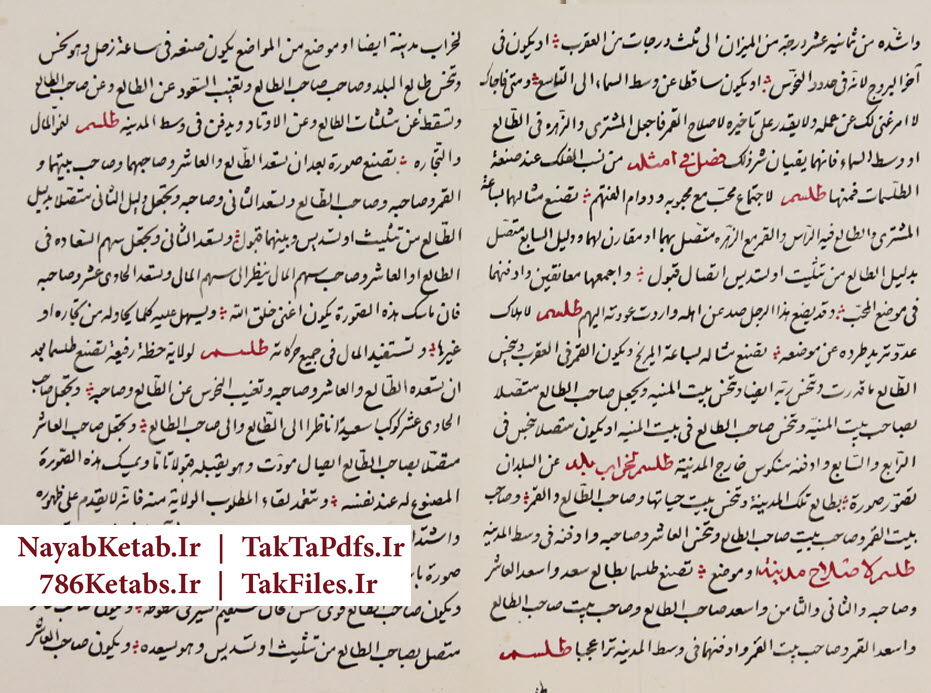 واشده من ثمانیه عشر درجه من المیزان الی ثلث درجات من العقرب او یکون فی
آخر البروج لانه فی حدود النحوس او یکون ساقطا عن وسط السماء الی التاسع و متی فاجاک
لا امر غنی لک عن عمله ولا یقدر علی تاخیره لاصلاح القمر فاجعل المشتری والزهره فی الطالع
او وسط السماء فانهما یقیان شر ذلک فصل فی امثله من نسب الفلک عند صنعة
الطلسمات فمنها طلسم لاجتماع محب مع محبوبه و دوام الفتهم تصنع مثالهما لساعة
المشتری والطالع فیه الراس والقمر مع الزهره متصل بهما او مقارن لهما و دلیل السابع متصل
بدلیل الطالع من تثلیث او تسدیس اتصال قبول واجمعهما معانقین وادفنهما
فی موضع المحب وقد یضع هذا الرجل صد عن اهله واردت عودته الیهم طلسم لاهلاک
عدو ترید طرده عن موضعه تصنع مثاله لساعة المریخ ویکون القمر فی العقرب و تنحس
الطالع ما قدرت و تنحس ربه ایضا و تنحس بیت المنیه و تجعل صاحب الطالع متصلا
بصاحب بیت المنیة و تنحس صاحب الطالع فی بیت المنیه او یکون متصلا بنحس فی
الرابع والسابع وادفنه منکوس خارج المدنیة طلسم لخراب بلد عن البلدان
تصور صورة بطالع تلک المدینة و تنحس بیت حیاتها وصاحب الطالع والقمر وصاحب
بیت القمر وصاحب بیت صاحب الطالع و تنحس العاشر وصاحبه وادفنه فی وسط المدینه
طلسم لاصلاح مدینة او موضع تصنع طلسما بطالع سعد واسعد العاشر
وصاحبه والثانی والثامن واسعد صاحب الطالع وصاحب بیت صاحب الطالع
واسعد القمر وصاحب بیت القمر وادفنها فی وسط المدینه تر اعجبا طلسم
لخراب مدینة ایضا او موضع من المواضع یکون صنعه فی ساعة زحل وهو نحس
و تنحس طالع البلد وصاحب صاحب الطالع و تغیب السعود عن الطالع وعن صاحب الطالع
و تسقط عن مثلثات الطالع وعن الاوتاد ویدفن فی وسط المدینه طلسم لنمو المال
والتجاره تصنع صورة بعد ان تسعد الطالع والعاشر وصاحبهما وصاحب بیتهما و
القمر وصاحبه وصاحب الطالع و تسعد الثانی وصاحبه و تجعل دلیل الثانی متصلا بدلیل
الطالع من تثلیث او تسدیس وبینهما قبول و تسعد الثانی و تجعل سهم السعاده فی
الطالع او العاشر وصاحب سهم المال ینظر الی سهم المال و تسعد الحادی عشر وصاحبه
فان ماسک هذه الصورة یکون اغنی خلق الله ویسهل علیه کلما یحاوله من تجاره او
غیرها و تستفید المال فی جمیع حرکاته طلسم لولایة خطة رفیعة تصنع طلسما بعد
ان تسعده الطالع والعاشر وصاحبه و تغیب النحوس عن الطالع وصاحبه و تجعل صاحب
الحادی عشر کوکبا سعیدا ناظرا الی الطالع والی صاحب الطالع و تجعل صاحب العاشر
متصلا بصاحب الطالع اتصال مودت وهو یقبله قبولا تاما ویمسک هذه الصورة
المصنوع له عند نفسه و یتعمد لقاء المطلوب الولایة منه فانه لا یقدم علی ظهوره
واشتد
صورة
ویکون صاحب الطالع قوی
متصل بصاحب الطالع من تثلیث او تسدیس وهو یسعده ویکون صاحب العاشر
NayabKetab.Ir | TakTaPdfs.Ir
786Ketabs.Ir | TakFiles.Ir